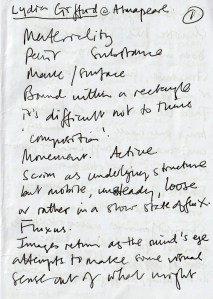 Lydia Gifford @ Almapearl ①
Materiality
Paint Substance
Mark / Surface
Bound within a rectangle
it's difficult not to think
'composition'.
Movement. Active
Scrim as underlying structure
but mobile, unsteady, loose
or rather in a slow state of flux.
Fluxus.
Images return as the mind's eye
attempts to make some visual
sense out of what might